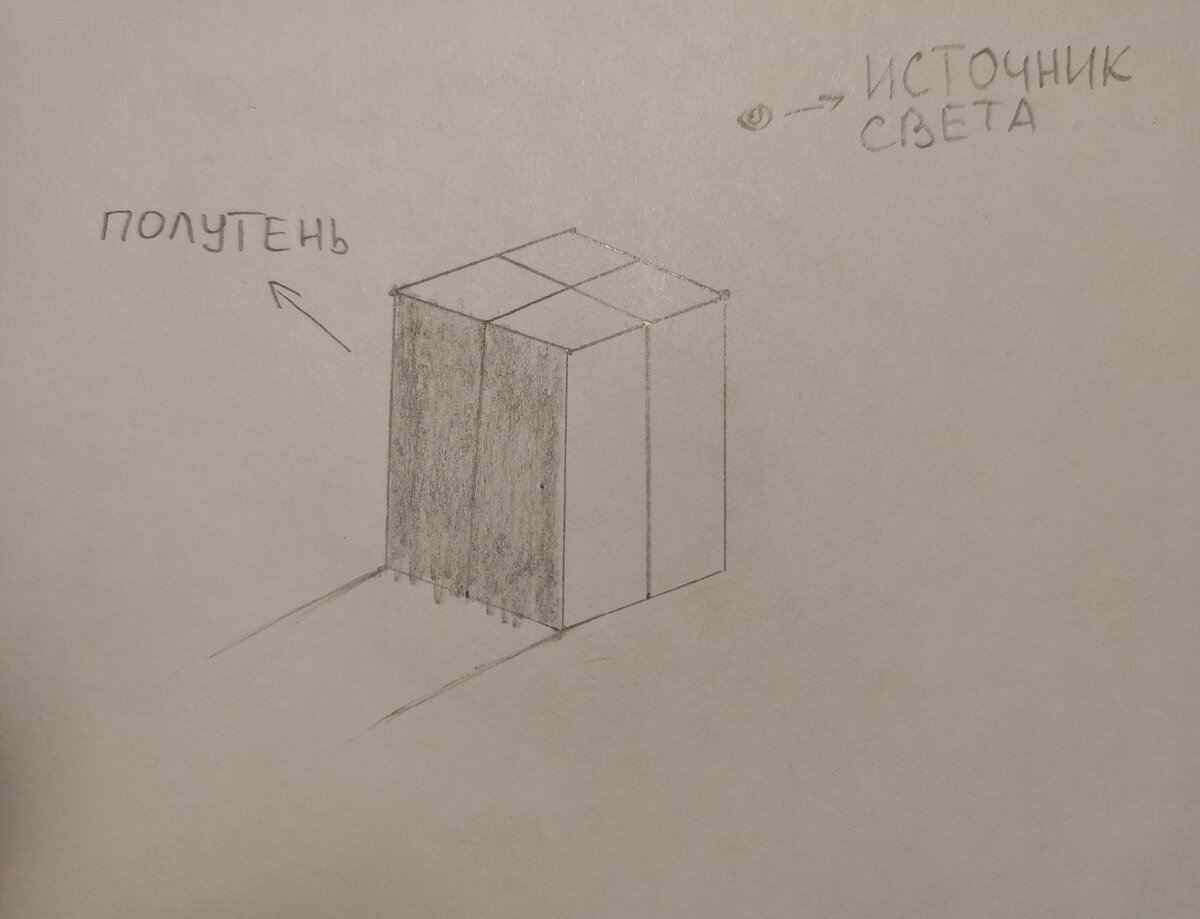 ИСТОЧНИК
СВЕТА
ПОЛУТЕНЬ